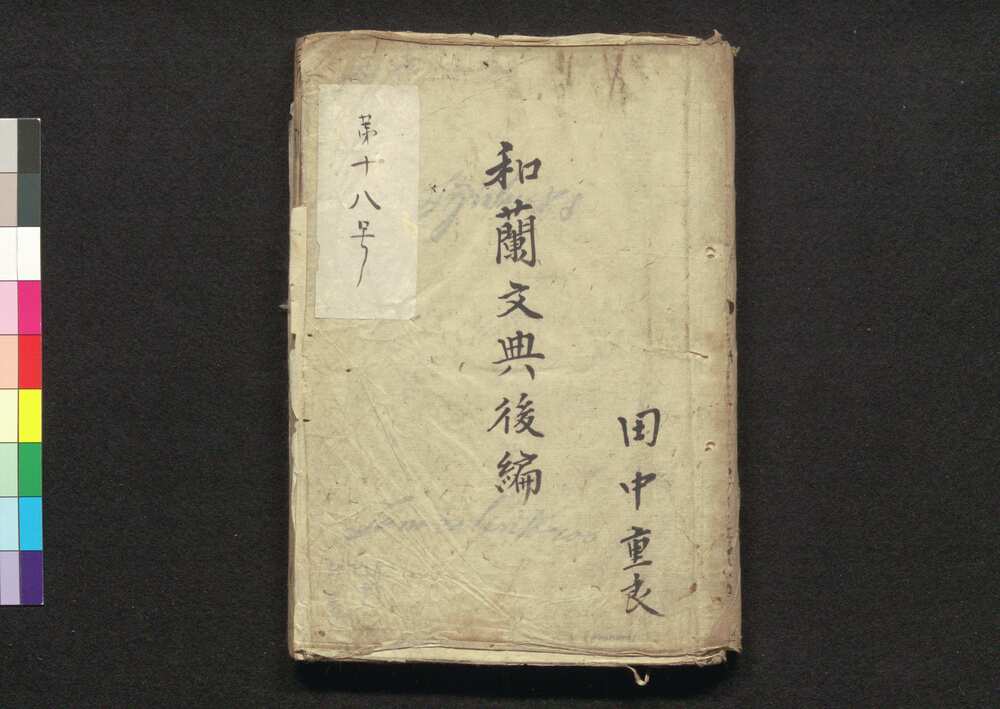 第十八号
和蘭文典後編
田中重衣